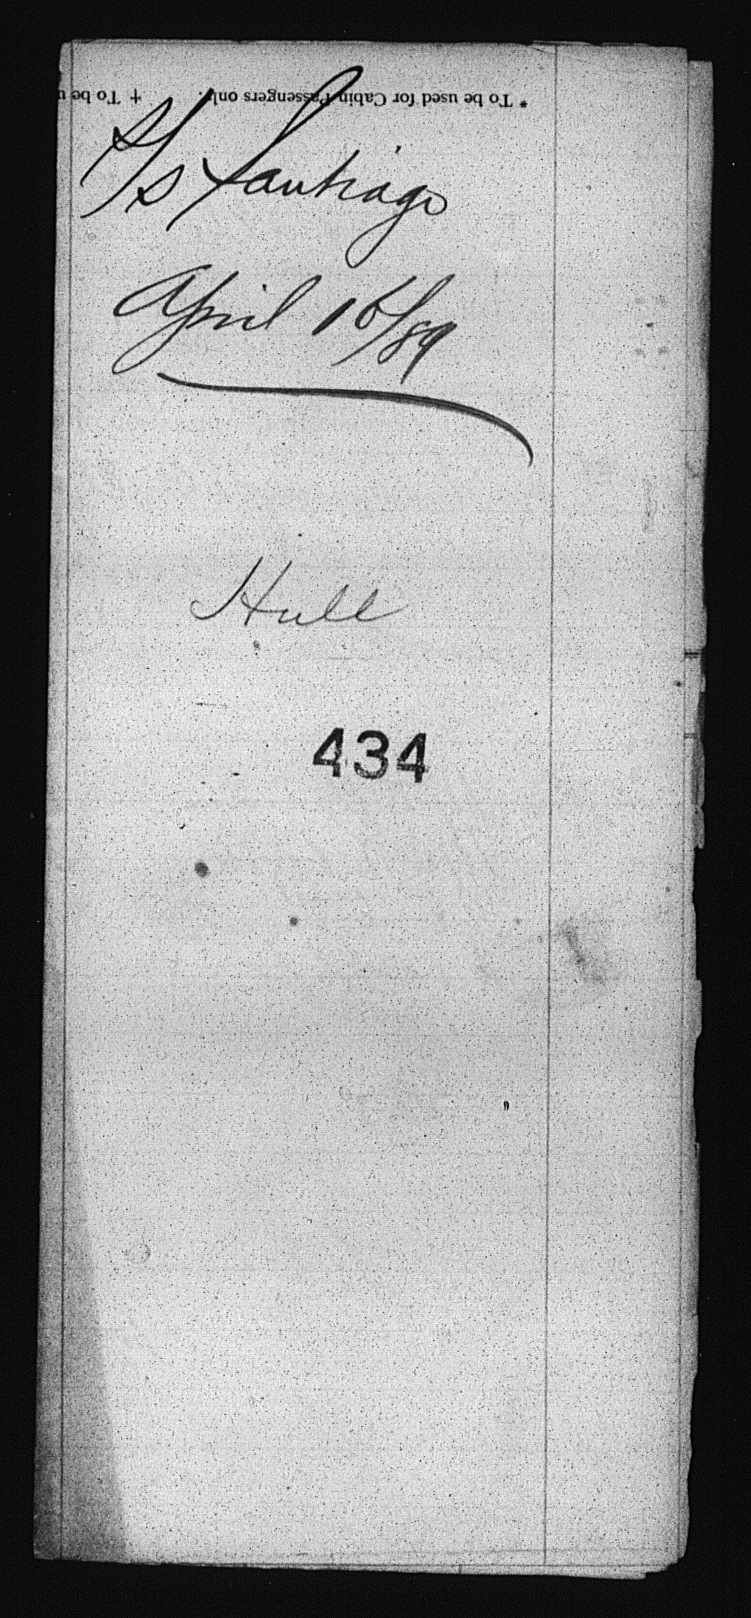 * To be used for Cabin Passengers only. † To be u
S/S Santiago
April 16/89
Hull
434